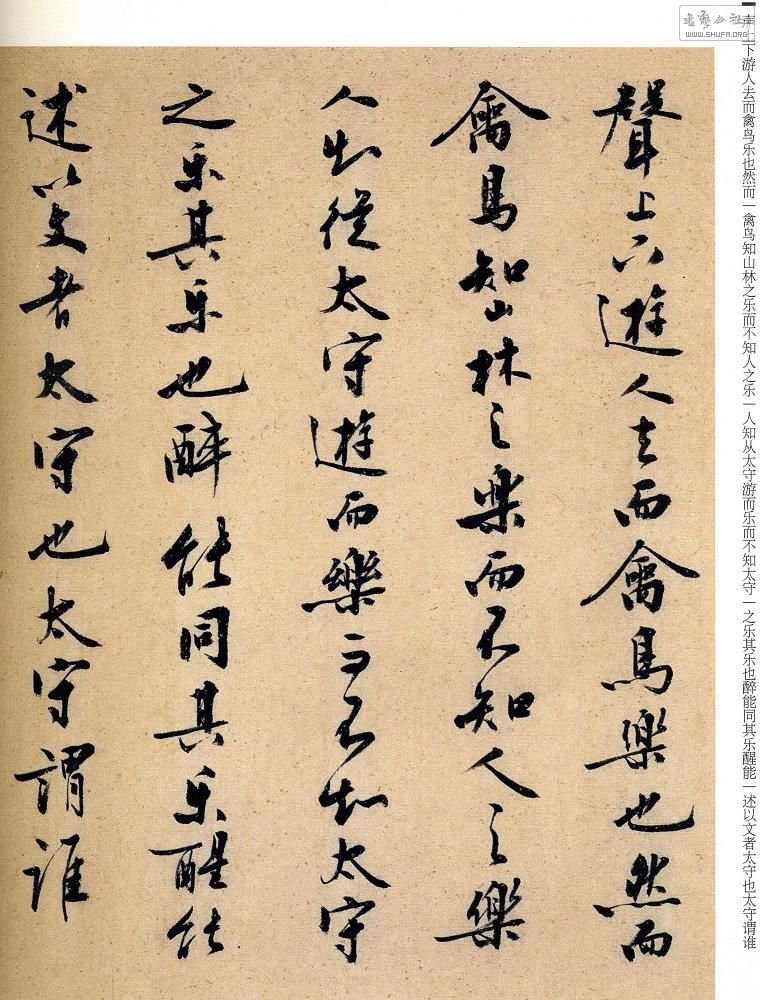 聲上下遊人去而禽鳥樂也然而
禽鳥知山林之樂而不知人之樂
人知從太守遊而樂而不知太守
之乐其乐也醉能同其乐醒能
述以文者太守也太守謂誰
声上下游人去而禽鸟乐也然而一禽鸟知山林之乐而不知人之乐一人知从太守游而乐而不知太守一之乐其乐也醉能同其乐醒能一述以文者太守也太守谓谁
书艺公社
WWW.SHUFA.ORG